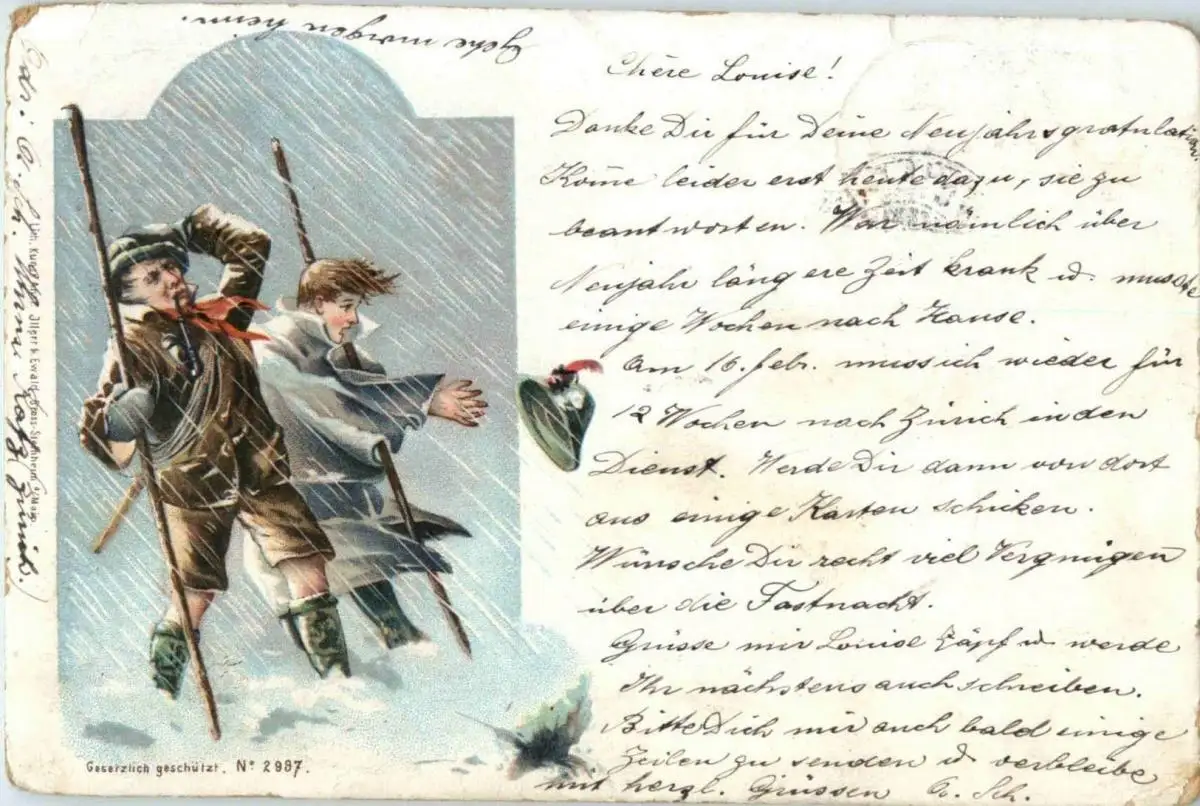 Chère Louise!
Danke Dir für Deine Neujahrsgratulation.
Kom̄e leider erst heute dazu, sie zu
beantworten. War nämlich über
Neujahr längere Zeit krank u. musste
einige Wochen nach Hause.
Am 16. febr. muss ich wieder für
12 Wochen nach Zürich in den
Dienst. Werde Dir dann von dort
aus einige Karten schicken.
Wünsche Dir recht viel Vergnügen
über die Fastnacht.
Grüsse mir Louise Zäpf u. werde
Ihr nächstens auch schreiben.
Bitte Dich mir auch bald einige
Zeilen zu senden u. verbleibe
mit herzl. Grüssen A. Sch.
Gehe morgen heim.
Lith. Kunstanst. Illger &
Gesetzlich geschützt. Nº 2987.